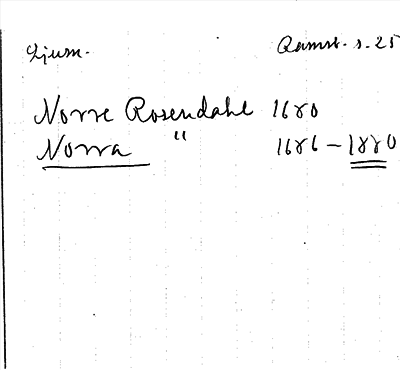 Ljum. Ramst. s. 25
Norre Rosendahl 1680
Norra " 1686 – 1880